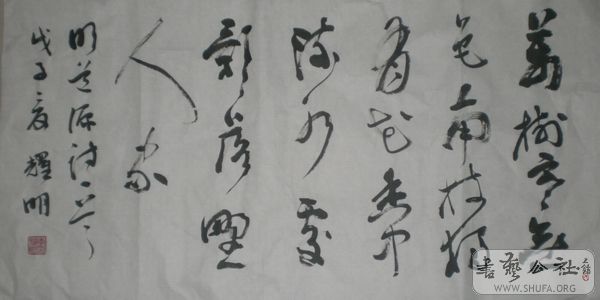 萬樹寒無
色南枝獨
有花香聞
流水處
影落野
人家
明道源詩一首
戊子夏耀明
書藝公社
WWW.SHUFA.ORG